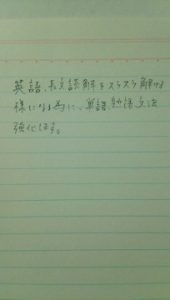 英語、長文読解をスラスラ解ける
様になる為に、単語、熟語、文法
強化します。